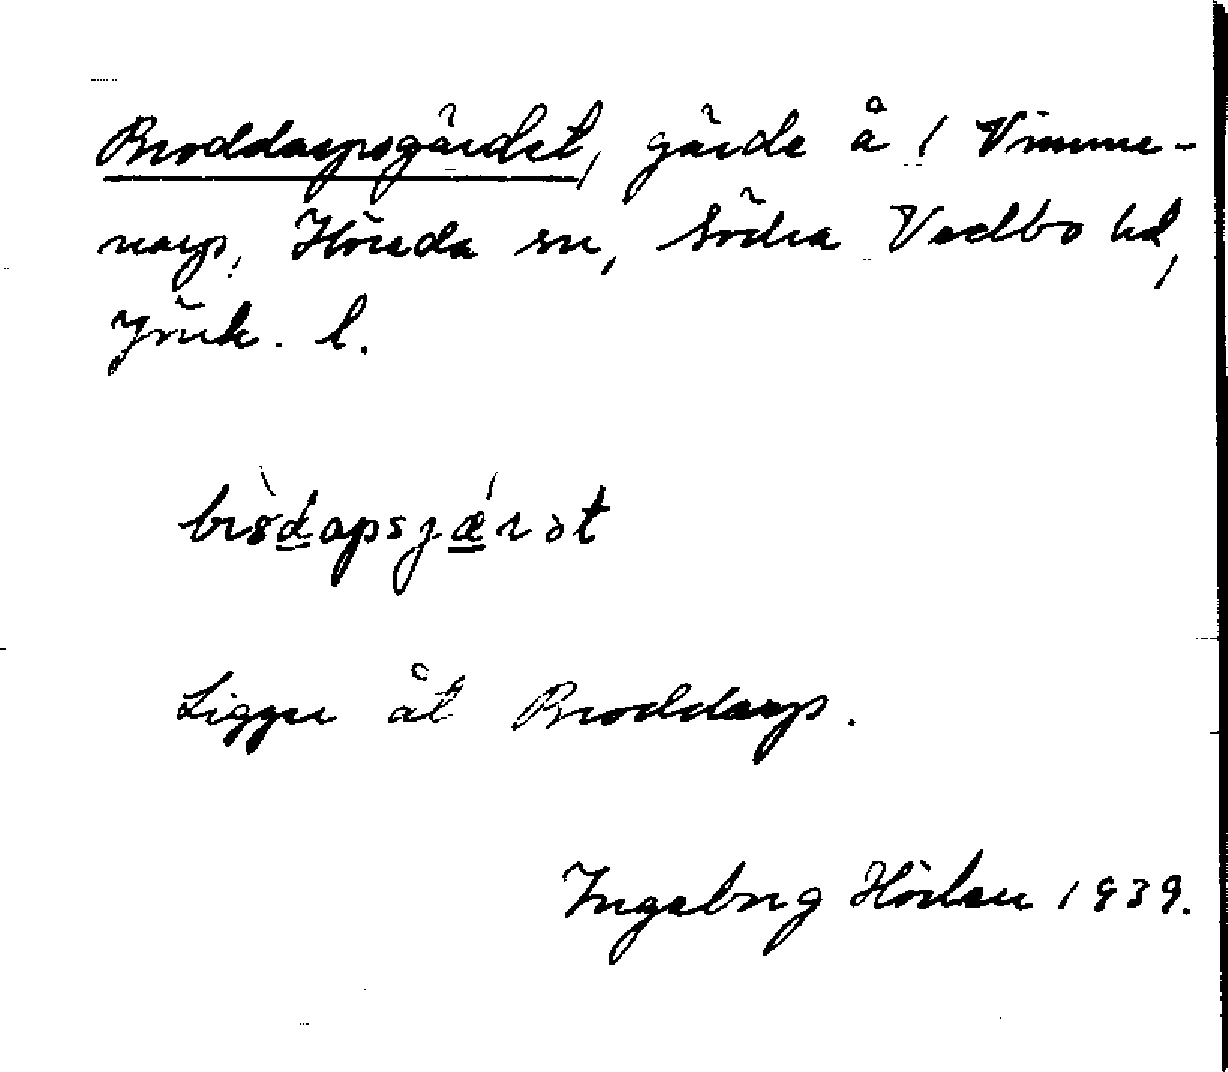 Broddarpsgärdet, gärde å 1 Vimme-
narp, Höreda sn, Södra Vedbo hd,
Jönk. l.
Ligger åt Broddarp.
Ingeborg 1939.